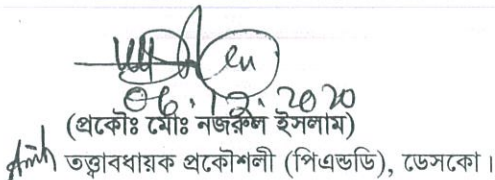 06.12.2020
(প্রকৌঃ মোঃ নজরুল ইসলাম)
তত্ত্বাবধায়ক প্রকৌশলী (পিএন্ডডি), ডেসকো।